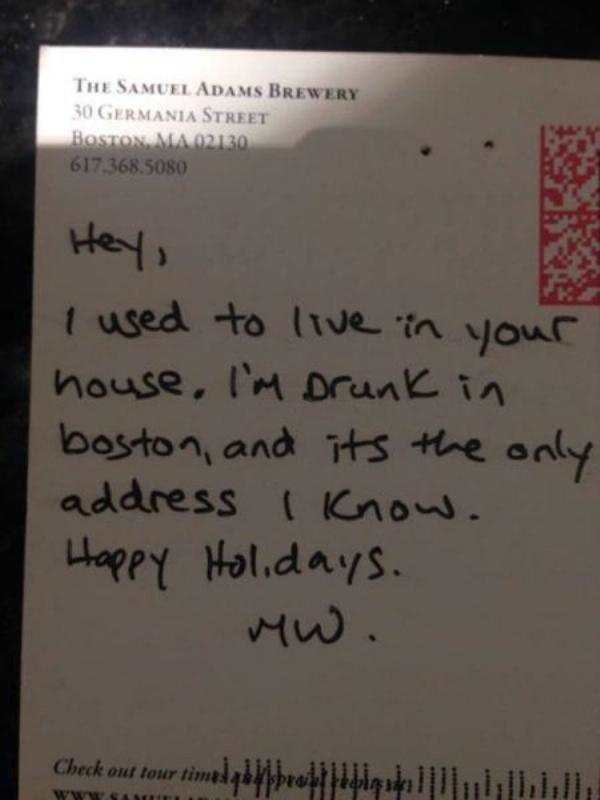 THE SAMUEL ADAMS BREWERY
30 GERMANIA STREET
BOSTON, MA 02130
617.368.5080
Hey,
I used to live in your
house. I'm Drunk in
boston, and its the only
address I Know.
Happy Holidays.
MW.
Check out tour times